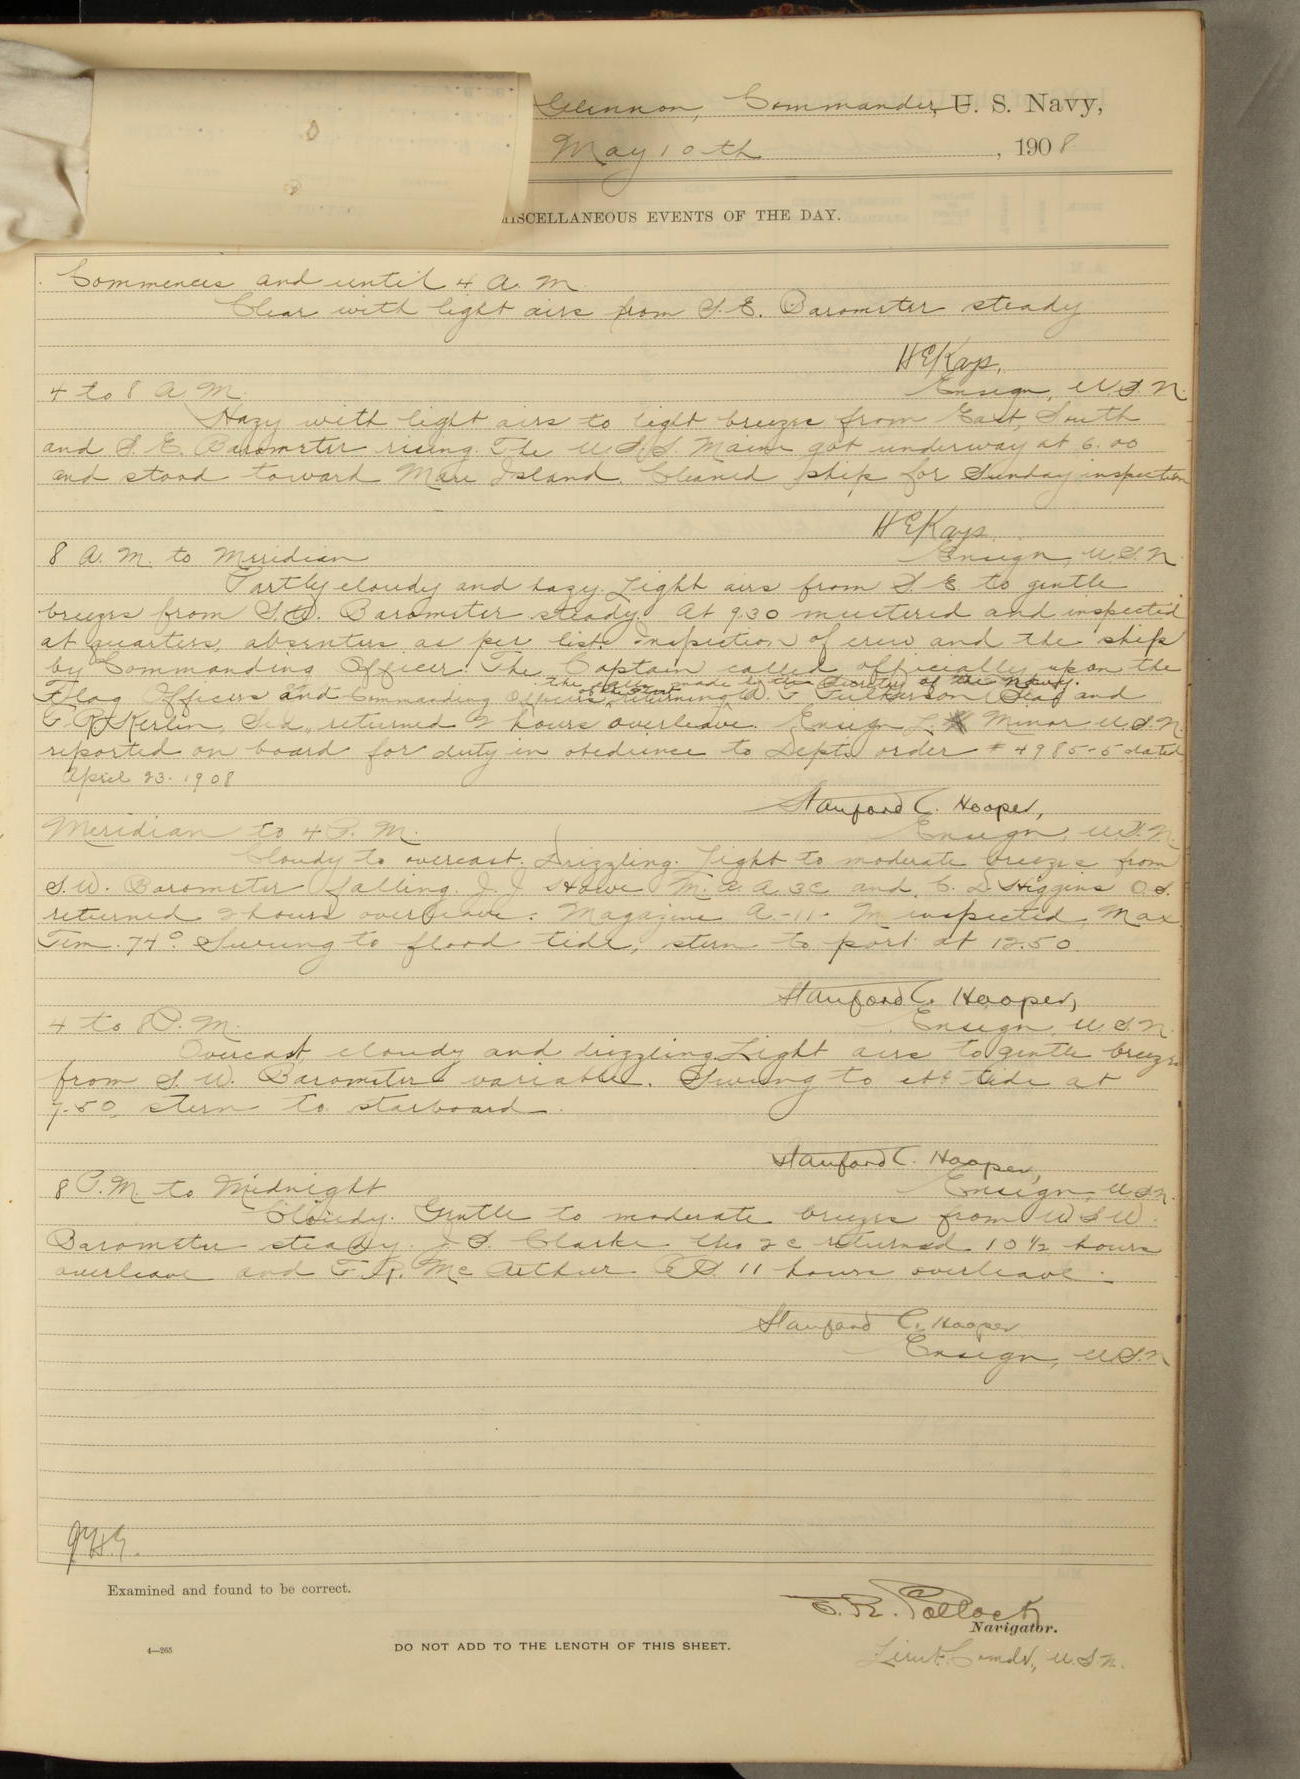 Glennon, Commander, U. S. Navy,
May 10th, 1908
MISCELLANEOUS EVENTS OF THE DAY.
Commences and until 4 A. M
Clear with light airs from S. E. Barometer steady
H E Kays,
4 to 8 A M. Ensign, U. S. N.
Hazy with light airs to light breezes from East, South
and S. E. Barometer rising. The U. S. S. Maine got underway at 6.00
and stood toward Mare Island. Cleaned ship for Sunday inspection
H E Kays.
8 A. M. to Meridian Ensign, U. S. N.
Partly cloudy and hazy. Light airs from S. E. to gentle
breezes from S. Barometer steady. At 9.30 mustered and inspected
at quarters, absentees as per list. Inspection of crew and the ship
by Commanding Officer. The Captain called officially upon the
the calls made by the Secretary of the Navy.
Flag Officers and Commanding Officers of the fleet returning (Sea) and
F. R. Kerlin, Sea., returned 2 hours overleave. Ensign L. Minor U. S. N.
reported on board for duty in obedience to Depts order # 4985-5 dated
April 23. 1908
Stanford C. Hooper,
Meridian to 4 P. M. Ensign, U. S. N.
Cloudy to overcast. Drizzling. Light to moderate breezes from
S. W. Barometer falling. J. J. Howe M. a A 3C and C. L. Higgins O. S.
returned 2 hours overleave. Magazine A-11-M inspected, Max
Tem. 74° Swung to flood tide, stern to port at 12.50.
Stanford C. Hooper,
4 to 8 P. M. Ensign, U. S. N.
Overcast, cloudy and drizzling. Light airs to gentle breezes
from S. W. Barometer variable. Swung to ebb tide at
7.50, stern to starboard.
Stanford C. Hooper,
8 P. M. to Midnight Ensign, U. S. N.
Cloudy. Gentle to moderate breezes from W S W.
Barometer steady. J. S. Clarke 2 c returned 10 1/2 hours
overleave and F. R. Mc Arthur 11 hours overleave.
Stanford C. Hooper
Ensign, U. S. N
Examined and found to be correct.
E. R. Pollock
Navigator.
4—265
DO NOT ADD TO THE LENGTH OF THIS SHEET.
Lieut. Comdr., U. S. N.